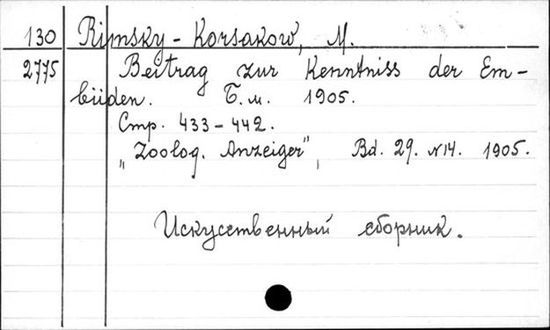 130 Rimsky-Korsakow, M.
2775 Beitrag zur Kenntniss der Em-
büiden. Б.м. 1905.
Стр. 433-442.
„Zoolog. Anzeiger", Bd. 29. N14. 1905.
Искусственный сборник.